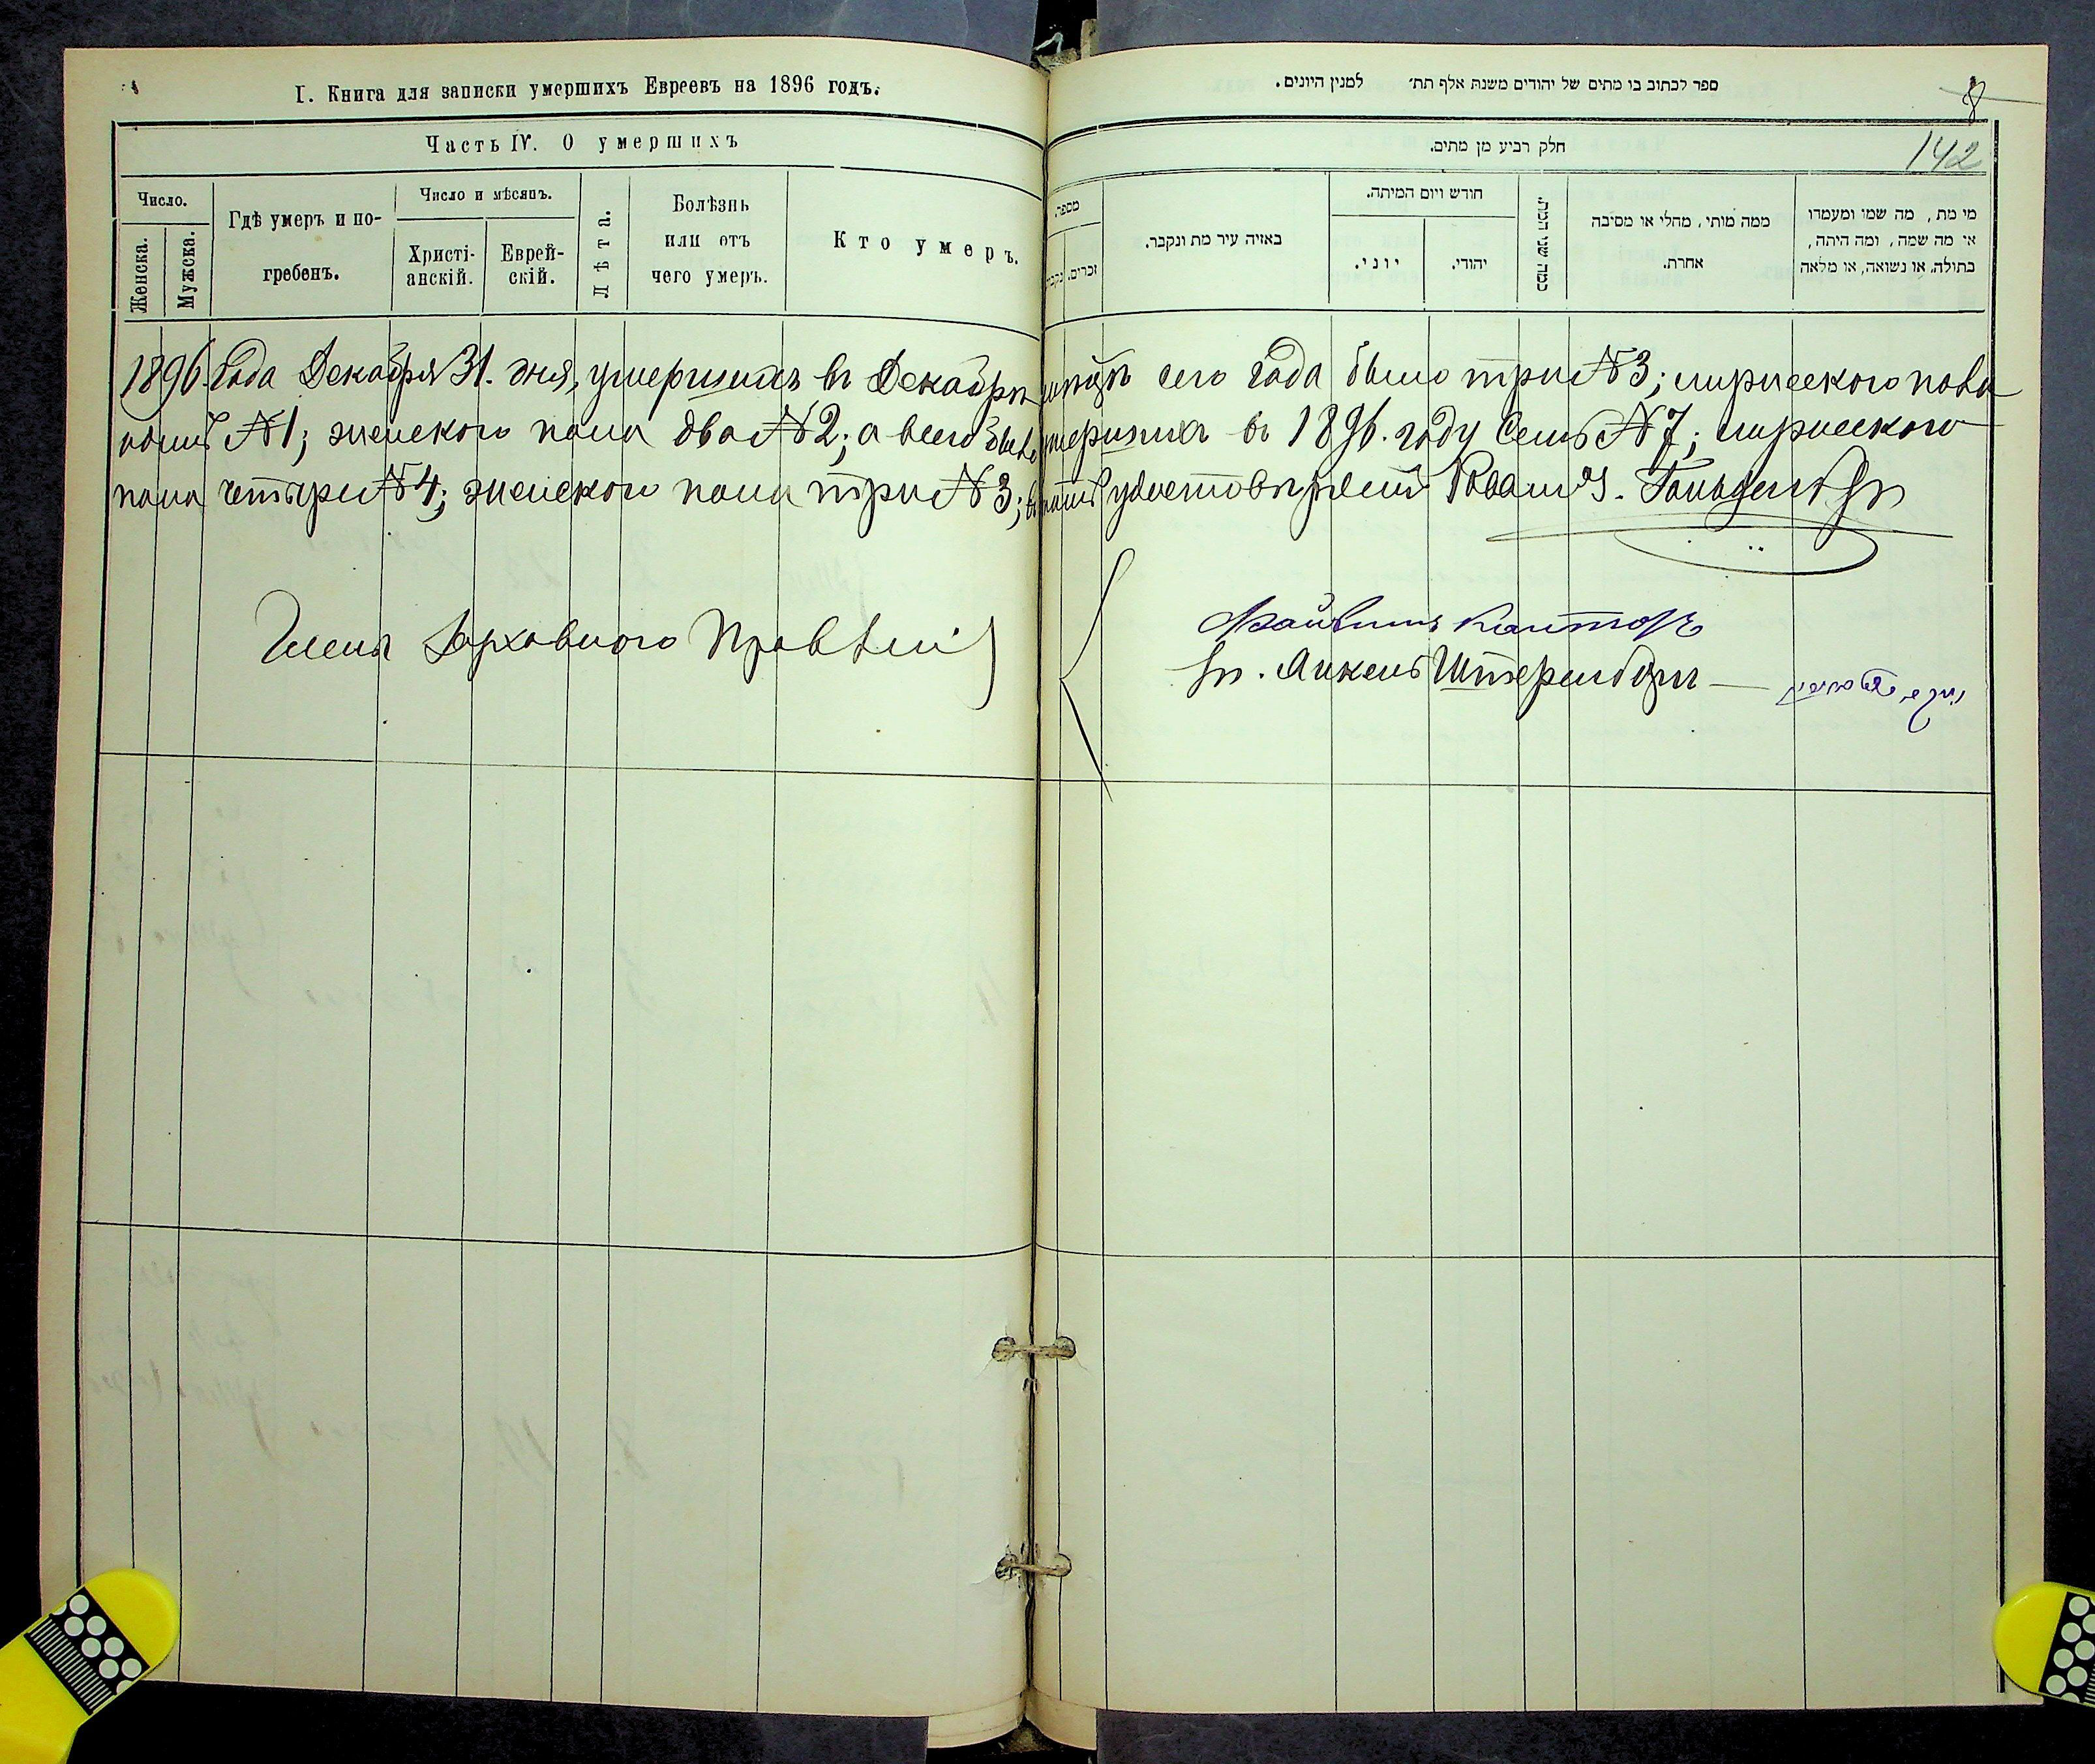 I. Книга для записки умершихъ Евреевъ на 1896 годъ.
Часть IV. О умершихъ
Число.
Женска.
Мужска.
Гдѣ умеръ и по-
гребенъ.
Число и мѣсяцъ.
Христі-
анскій.
Еврей-
скій.
Лѣта.
Болѣзнь
или отъ
чего умеръ.
Кто умеръ.
ספר לכתוב בו מתים של יהודים משנת אלף תת׳ למנין היונים.
8
142
חלק רביע מן מתים.
מספר.
זכרים.
באיזה עיר מת ונקבר.
חודש ויום המיתה.
יוני.
יהודי.
כמה שני המת.
ממה מותו, מחלי או מסיבה
אחרת.
מי מת, מה שמו ומעמדו
או מה שמה, ומה היתה,
בתולה, או נשואה, או מלאה
1896. года Декабря 31. дня, умершихъ въ Декабрѣ мѣсяцѣ сего года было три №3; мужескаго пола
одинъ №1; женскаго пола два №2; а всего было умершихъ въ 1896. году Семь №7; мужескаго
пола четыре №4; женскаго пола три №3; въ томъ удостовѣряемъ Раввинъ
Члены Духовного Правленія
Файвишъ Канторъ
Анкель Штеренбергъ —